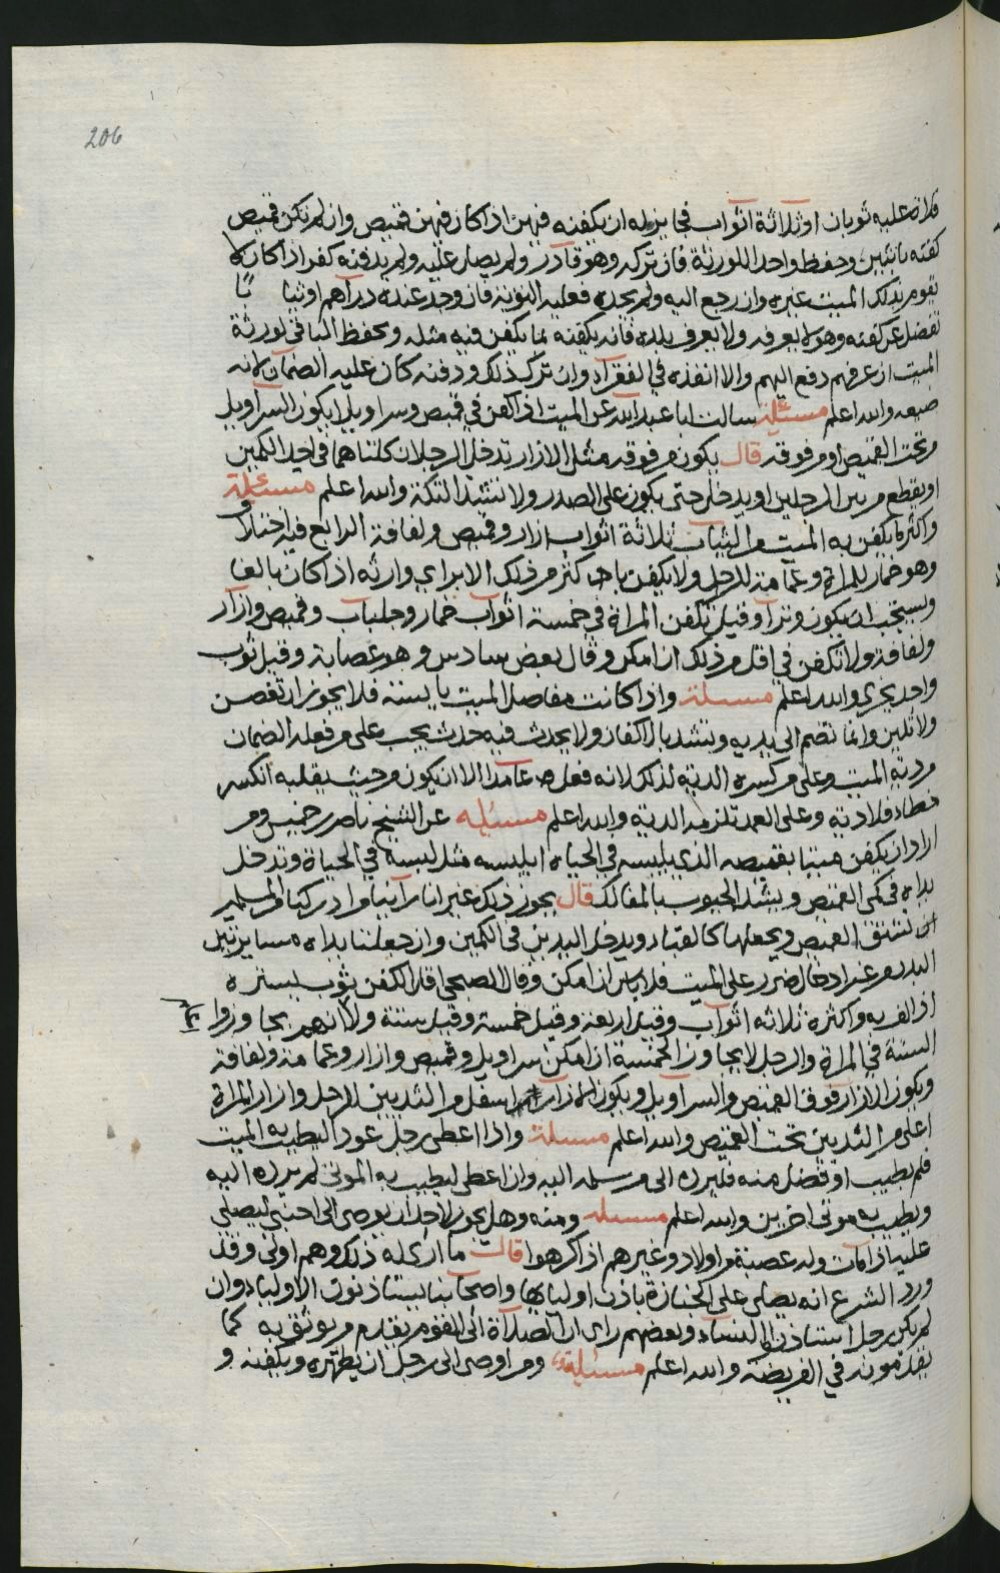 206
فلانه عليه ثوبان او ثلاثة اثواب فجايز له ان يكفنه فيهن اذا كان فيهن قميص وان لم تكن قميص
كفنه باثنين وحفظ واحدا للورثة فان تركه وهو قادر ولم يصل عليه ولم يدفنه كفر اذا كان لا
يقوم بذلك الميت غيره وان رجع اليه ولم يجده فعليه التوبة فان وجد عنده دراهم او ثيابا
تفضل عن كفنه وهو لا يعرفه ولا يعرف بلده فانه يكفنه بما يكفن فيه مثله ويحفظ الباقي لورثة
الميت ان عرفهم دفع اليهم والا انفذه في الفقراء وان ترك ذلك ودفنه كان عليه الضمان لانه
ضيعه والله اعلم مسئلة سالت ابا عبد الله عن الميت اذا كفن في قميص وسراويل ايكون السراويل
من تحت القميص او من فوقه قال يكون من فوقه مثل الازار تدخل الرجلان كلتاهما في احد الكمين
او يقطع من بين الرجلين او يدخل حتى يكون على الصدر ولا تشد التكة والله اعلم مسئلة
واكثر ما يكفن به الميت من الثياب ثلاثة اثواب ازار وقميص ولفافة الرابع فيه اختلاف
وهو خمار للمراة وعمامة للرجل ولا يكفن باكثر من ذلك الا براي وارثه اذا كان بالغا
ويستحب ان يكون وترا وقيل تكفن المراة في خمسة اثواب خمار وجلباب وقميص وازار
ولفافة ولا تكفن في اقل من ذلك ان امكن وقال بعض سادس وهو عصابة وقيل ثوب
واحد يجزي والله اعلم مسئلة واذا كانت مفاصل الميت يابسة فلا يجوز ان تغصن
ولا تلين وانما تضم الى يديه وتشد بالاكفان ولا يحدث فيه حدث يجب على من فعله الضمان
من دية الميت وعلى من كسره الدية لذلك لانه فعله عامدا الا ان يكون من حيث يقلبه انكسر
خطاء فلا دية وعلى العمد تلزمه الدية والله اعلم مسئلة عن الشيخ ناصر بن خميس ومن
اراد ان يكفن ميتا بقميصه الذي يلبسه في الحياة ايلبسه مثل لبسه في الحياة وتدخل
يداه في كمي القميص ويشد الجيوب بالمفالك قال يجوز ذلك غير انا راينا من ادركنا من المسلمين
ان تشقق القميص ويجعلها كالقباء ويدخل اليدين في الكمين وان جعلتا يداه مسايرتين
البدن من غير ادخال ضرر على الميت فلا باس ان امكن وقال الصبحي اقل الكفن ثوب يستره
اذا لف به واكثره ثلاثة اثواب وقيل اربعة وقيل خمسة وقيل ستة ولا انهم يجاوزوا
الستة في المراة والرجل لا يجاوز الخمسة ان امكن سراويل وقميص وازار وعمامة ولفافة
ويكون الازار فوق القميص والسراويل ويكون الازار اسفل من الثديين للرجل وازار المراة
اعلى من الثديين تحت القميص والله اعلم مسئلة واذا اعطى رجل عودا ليطيب به الميت
فلم يطيب او فضل منه فليرده الى من سلمه اليه وان اعطي ليطيب به الموتى لم يرده اليه
ويطيب به موتى اخرين والله اعلم مسئلة ومنه وهل يجوز لاحد ان يوصي الى اجنبي ليصلي
عليه اذا مات وله عصبة من اولاد وغيرهم اذا كرهوا قال ما ارى له ذلك وهم اولى وقد
ورد الشرع انه يصلى على الجنازة باذن اوليائها واصحابنا يستاذنون الاولياء وان
لم يكن رجل استاذن النساء وبعضهم راى ان الصلاة الى القوم يقدم من يوثق به كما
يقدمونه في الفريضة والله اعلم مسئلة ومن اوصى الى رجل ان يطهره ويكفنه و